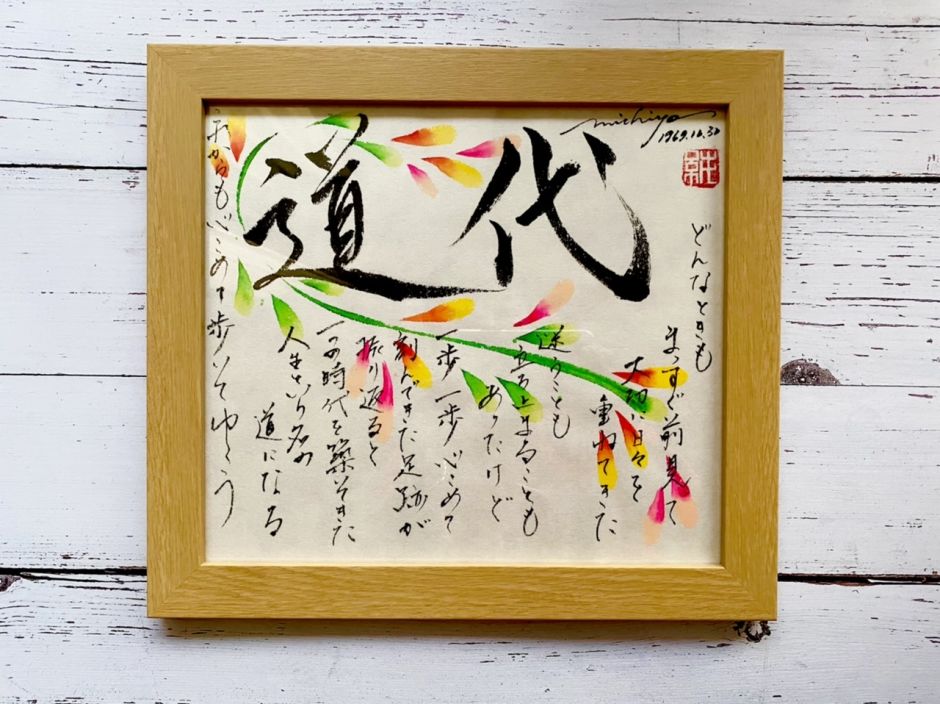 道代
michiyo
1969.10.30
どんなときも
まっすぐ前見て
大切に日々を
重ねてきた
迷うことも
立ち止まることも
あったけど
一歩一歩心こめて
刻んできた足跡が
振り返ると
一つの時代を築いてきた
人生という名の
道になる
これからも心こめて歩いてゆこう